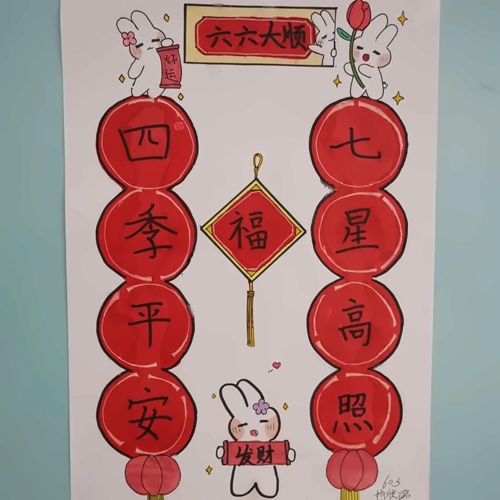 六六大顺
好运
七星高照
四季平安
福
发财
603